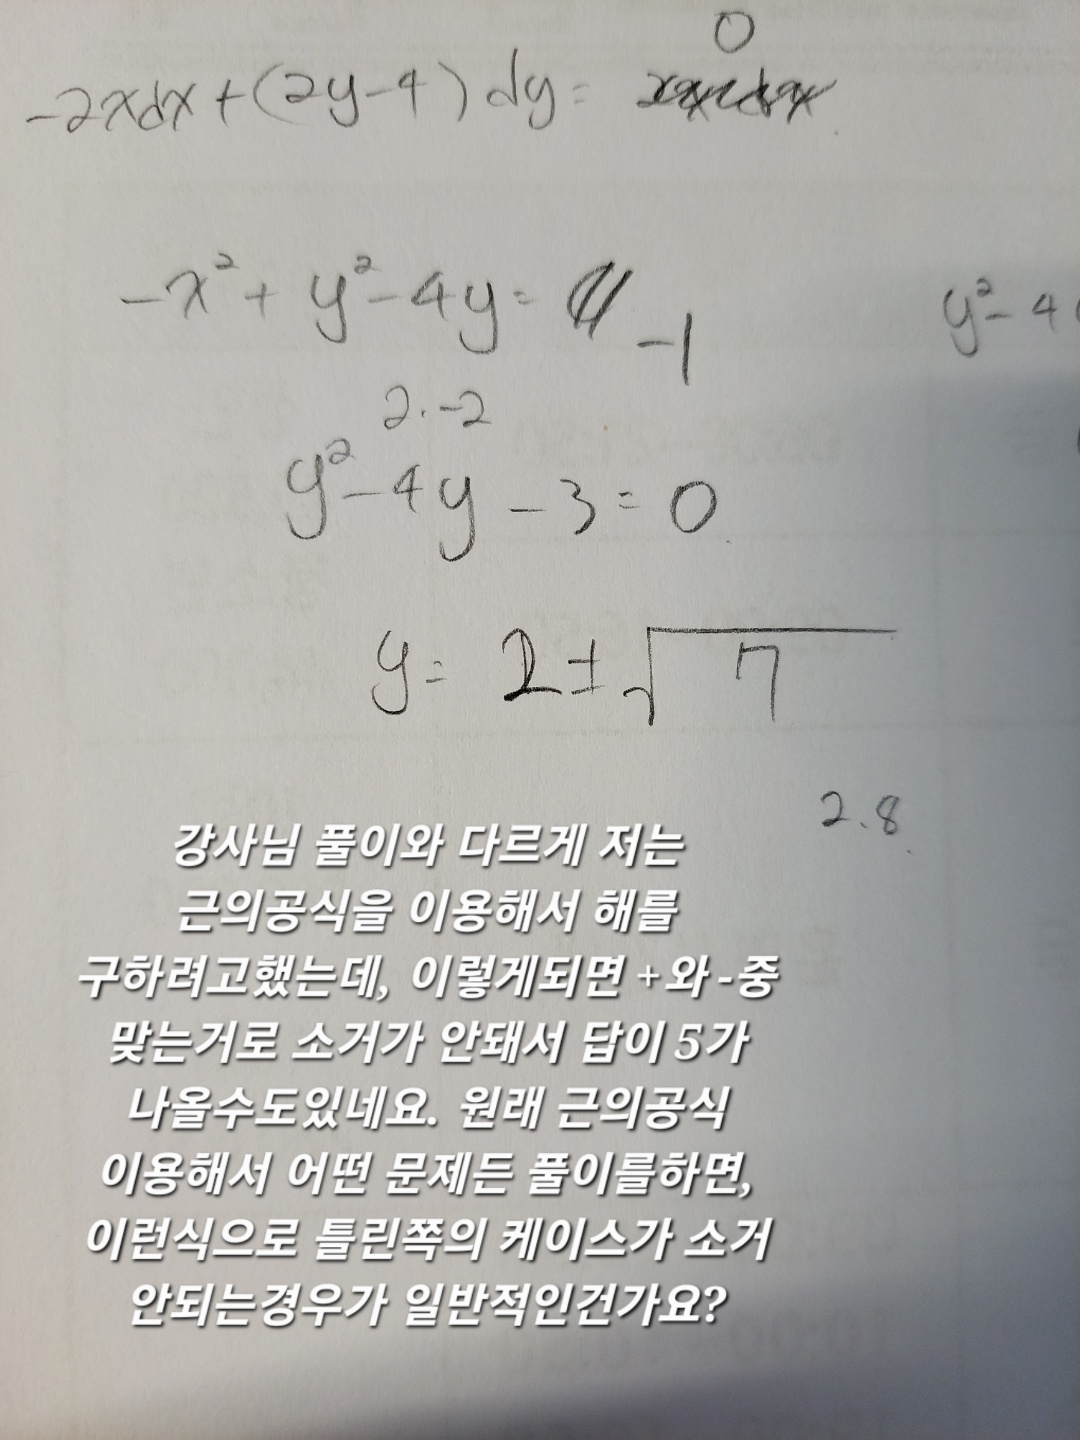 0
-2xdx+(2y-4)dy=
-x²+y²-4y= -1
y²-4
2.-2
y²-4y-3=0
y= 2±√7
2.8
강사님 풀이와 다르게 저는
근의공식을 이용해서 해를
구하려고했는데, 이렇게되면 +와 -중
맞는거로 소거가 안돼서 답이 5가
나올수도있네요. 원래 근의공식
이용해서 어떤 문제든 풀이를하면,
이런식으로 틀린쪽의 케이스가 소거
안되는경우가 일반적인건가요?